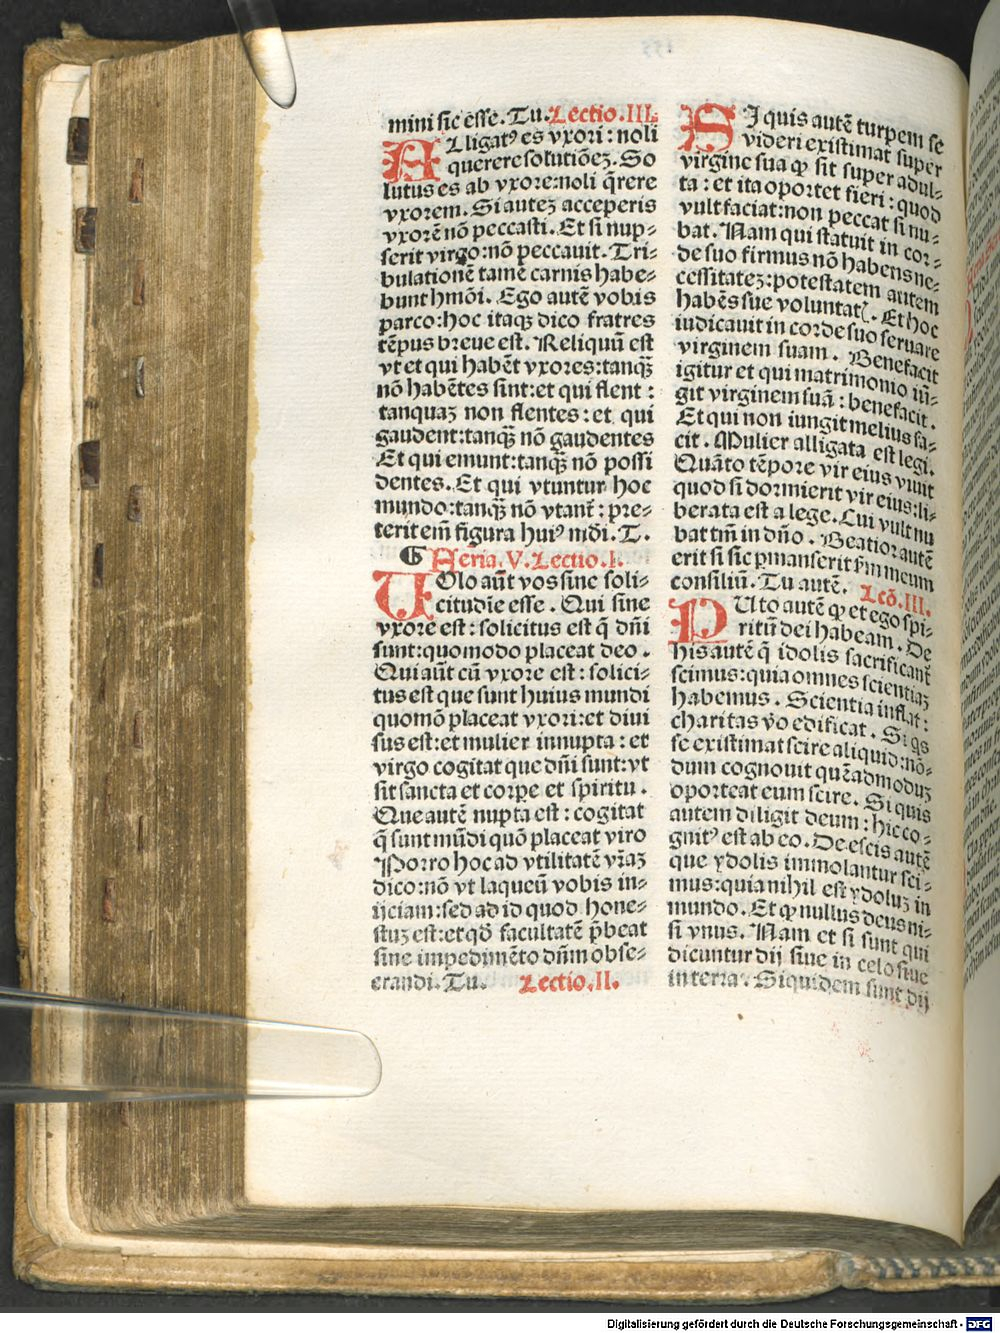 mini sic esse. Tu. Lectio. III.
ALligatꝰ es vxori: noli
querere solutiōeʒ. So
lutus es ab vxore: noli q̄rere
vxorem. Si auteʒ acceperis
vxorē nō peccasti. Et si nup⸗
serit virgo: nō peccauit. Tri⸗
bulationē tamē carnis habe⸗
bunt hmōi. Ego autē vobis
parco: hoc itaqʒ dico fratres
tēpus breue est. Reliquū est
vt et qui habēt vxores: tanqʒ̄
nō habētes sint: et qui flent:
tanquaʒ non flentes: et qui
gaudent: tanqʒ̄ nō gaudentes
Et qui emunt: tanqʒ̄ nō possi
dentes. Et qui vtuntur hoc
mundo: tanqʒ̄ nō vtant᷑: pre⸗
terit em̄ figura huiꝰ mdi. T.
¶ Feria. V. Lectio. I.
UOlo aūt vos sine soli⸗
citudīe esse. Qui sine
vxore est: solicitus est q̄ dn̄i
sunt: quomodo placeat deo.
Qui aūt cū vxore est: solici⸗
tus est que sunt huius mundi
quomō placeat vxori: et diui
sus est: et mulier innupta: et
virgo cogitat que dn̄i sunt: vt
sit sancta et corpe et spiritu.
Que autē nupta est: cogitat
q̄ sunt mūdi quō placeat viro
Porro hoc ad vtilitatē vr̄aʒ
dico: nō vt laqueū vobis in⸗
ijciam: sed ad id quod hone⸗
stuʒ est: et qd̄ facultatē p̄beat
sine impedimēto dn̄m obse⸗
crandi. Tu. Lectio. II.
SI quis autē turpem se
videri existimat super
virgine sua ꝙ sit super adul⸗
ta: et ita oportet fieri: quod
vult faciat: non peccat si nu⸗
bat. Nam qui statuit in cor⸗
de suo firmus nō habens ne⸗
cessitateʒ: potestatem autem
habēs sue voluntatꝭ. Et hoc
iudicauit in corde suo seruare
virginem suam. Benefacit
igitur et qui matrimonio iū⸗
git virginem suā: benefacit.
Et qui non iungit melius fa⸗
cit. Mulier alligata est legi.
Quāto tēpore vir eius viuit
quod si dormierit vir eius: li⸗
berata est a lege. Cui vult nu
bat tm̄ in dn̄o. Beatior autē
erit si sic pmanserit s̄m meum
consiliū. Tu autē. Lcō. III.
PUto autē ꝙ et ego spi⸗
ritū dei habeam. De
his autē q̄ idolis sacrificant᷑
scimus: quia omnes scientiaʒ
habemus. Scientia inflat:
charitas v̄o edificat. Si qs
se existimat scire aliquid: nō⸗
dum cognouit quēadmoduʒ
oporteat eum scire. Si quis
autem diligit deum: hic co⸗
gnitꝰ est ab eo. De escis autē
que ydolis immolantur sci⸗
mus: quia nihil est ydoluʒ in
mundo. Et ꝙ nullus deus ni⸗
si vnus. Nam et si sunt qui
dicuntur dij siue in celo siue
in terra. Siquidem sunt dij
Digitalisierung gefördert durch die Deutsche Forschungsgemeinschaft - DFG